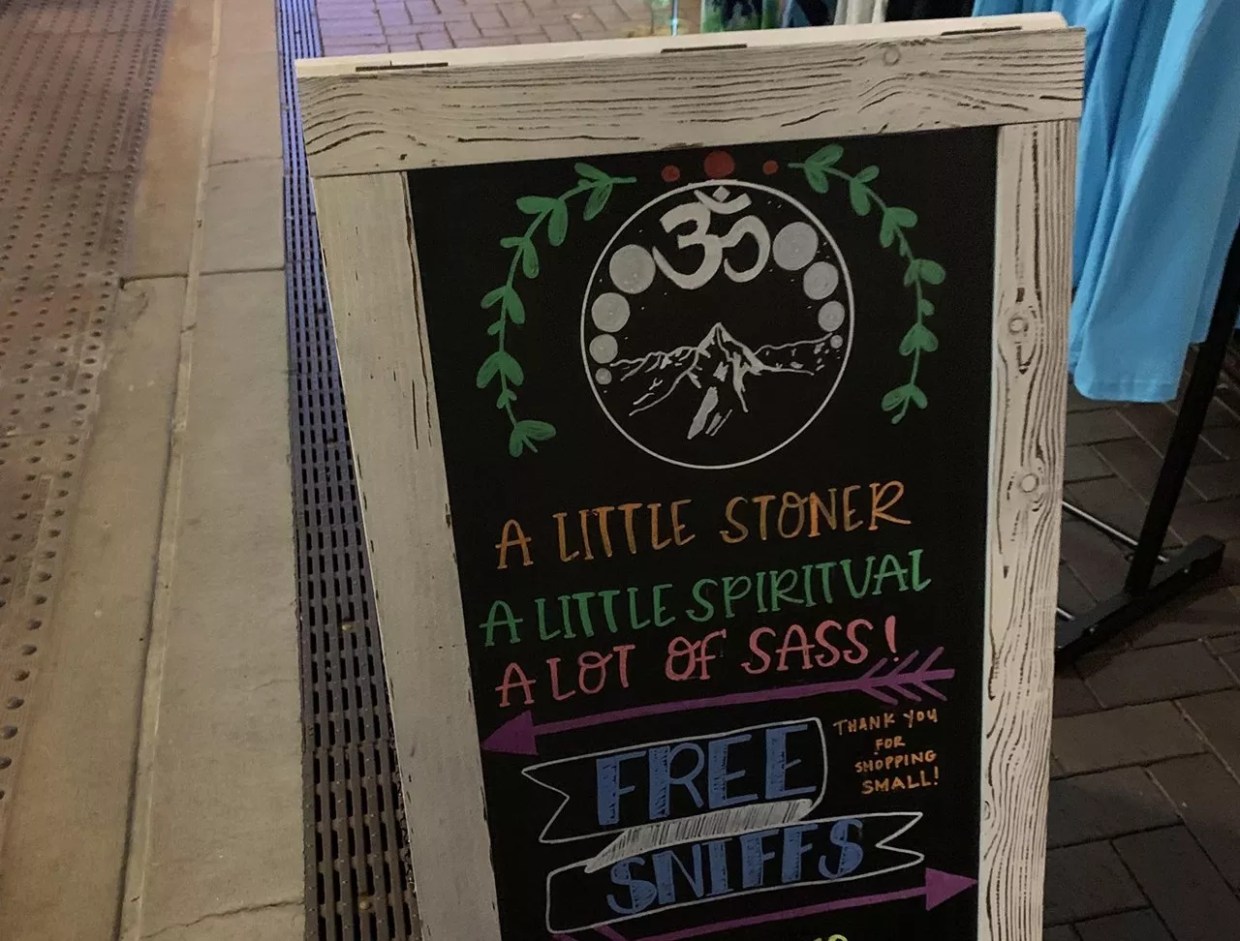 ॐ
A LITTLE STONER
A LITTLE SPIRITUAL
A LOT OF SASS!
FREE
SNIFFS
THANK YOU
FOR
SHOPPING
SMALL!